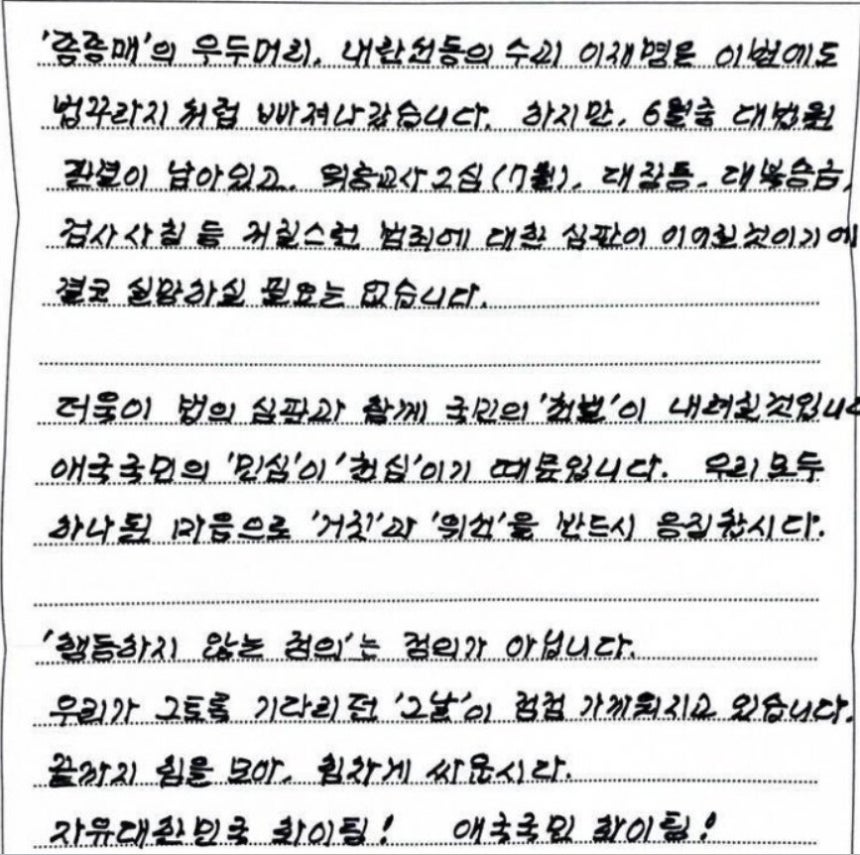 '종중매'의 우두머리, 내란선동의 수괴 이재명은 이번에도
법꾸라지 처럼 빠져나갔습니다. 하지만, 6월중 대법원
판결이 남아있고, 위증교사 2심(7월), 대장동, 대북송금,
검사사칭 등 저질스런 범죄에 대한 심판이 이어질것이기에
결코 실망하실 필요는 없습니다.
더욱이 법의 심판과 함께 국민의 '천벌'이 내려질것입니다
애국국민의 '민심'이 '천심'이기 때문입니다. 우리 모두
하나된 마음으로 '거짓'과 '위선'을 반드시 응징합시다.
'행동하지 않는 정의'는 정의가 아닙니다.
우리가 그토록 기다리던 '그날'이 점점 가까워지고 있습니다.
끝까지 힘을 모아, 힘차게 싸웁시다.
자유대한민국 화이팅! 애국국민 화이팅!